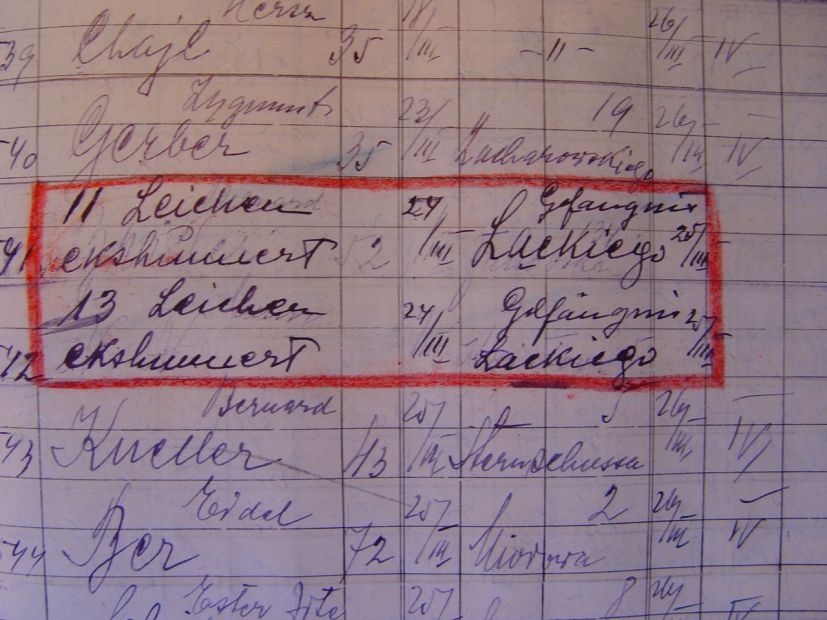 39 Chajt 35 18/III -"- 26/III IV
Zygmunt 23/ " 19 26/
40 Gerber 35 III Zacharowskiego III IV
11 Leichen 24 Gefängnis
41 ekshumiert /III Łąckiego 25/III
13 Leichen 24 Gefängnis 25/
42 ekshumiert /III Łąckiego III
Bernard 25/ 5 26/
43 Kneller 43 III Sternschussa III IV
Eidel 25/ 2 26/
44 Ber 72 III Miodowa III IV
Ester 25/ 8 26/